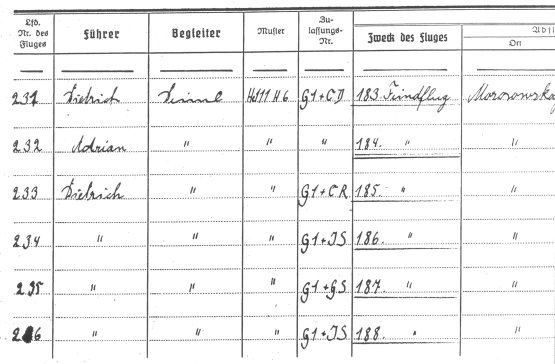 Lfd. Nr. des Fluges Führer Begleiter Muster Zulassungs-Nr. Zweck des Fluges Abfl Ort
231 Dietrich He111 H6 G1+CD 183. Feindflug Morosowskaj
232 Adrian " " " 184. " "
233 Dietrich " " G1+CR 185. " "
234 " " " G1+JS 186. " "
235 " " " G1+GS 187. " "
236 " " " G1+JS 188. " "